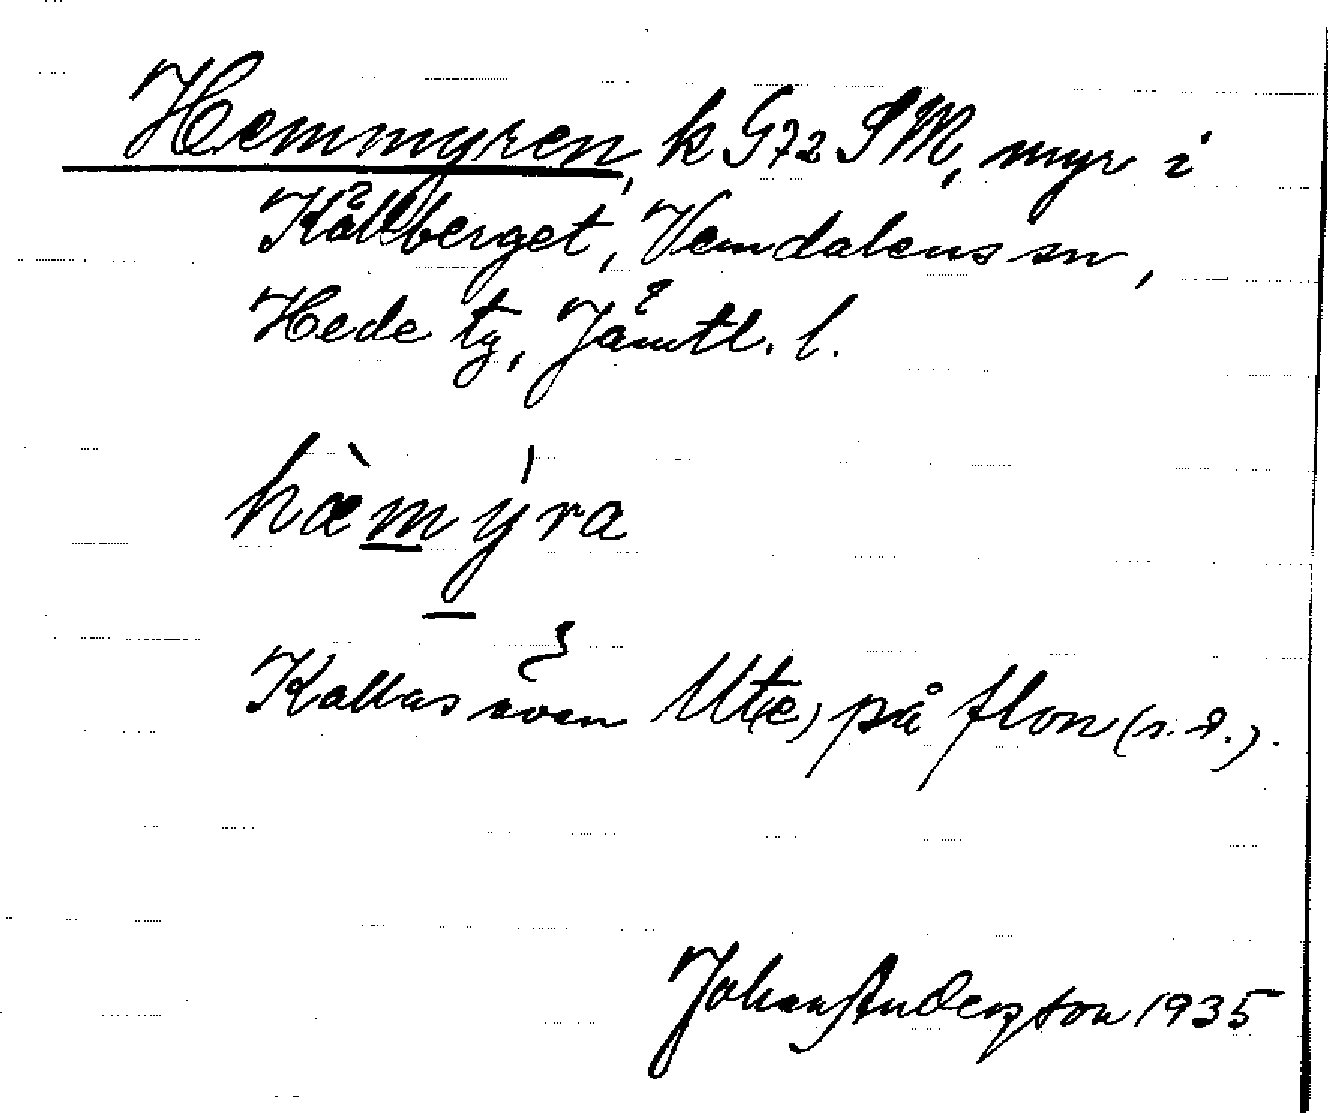 Hemmyren, k G72 SM, myr i
Kålberget, Vemdalens sn,
Hede tg, Jämtl. l.
hæ̀mýra
Kallas även Ut(e) på flon (s. d.).
Johan Anderzson 1935